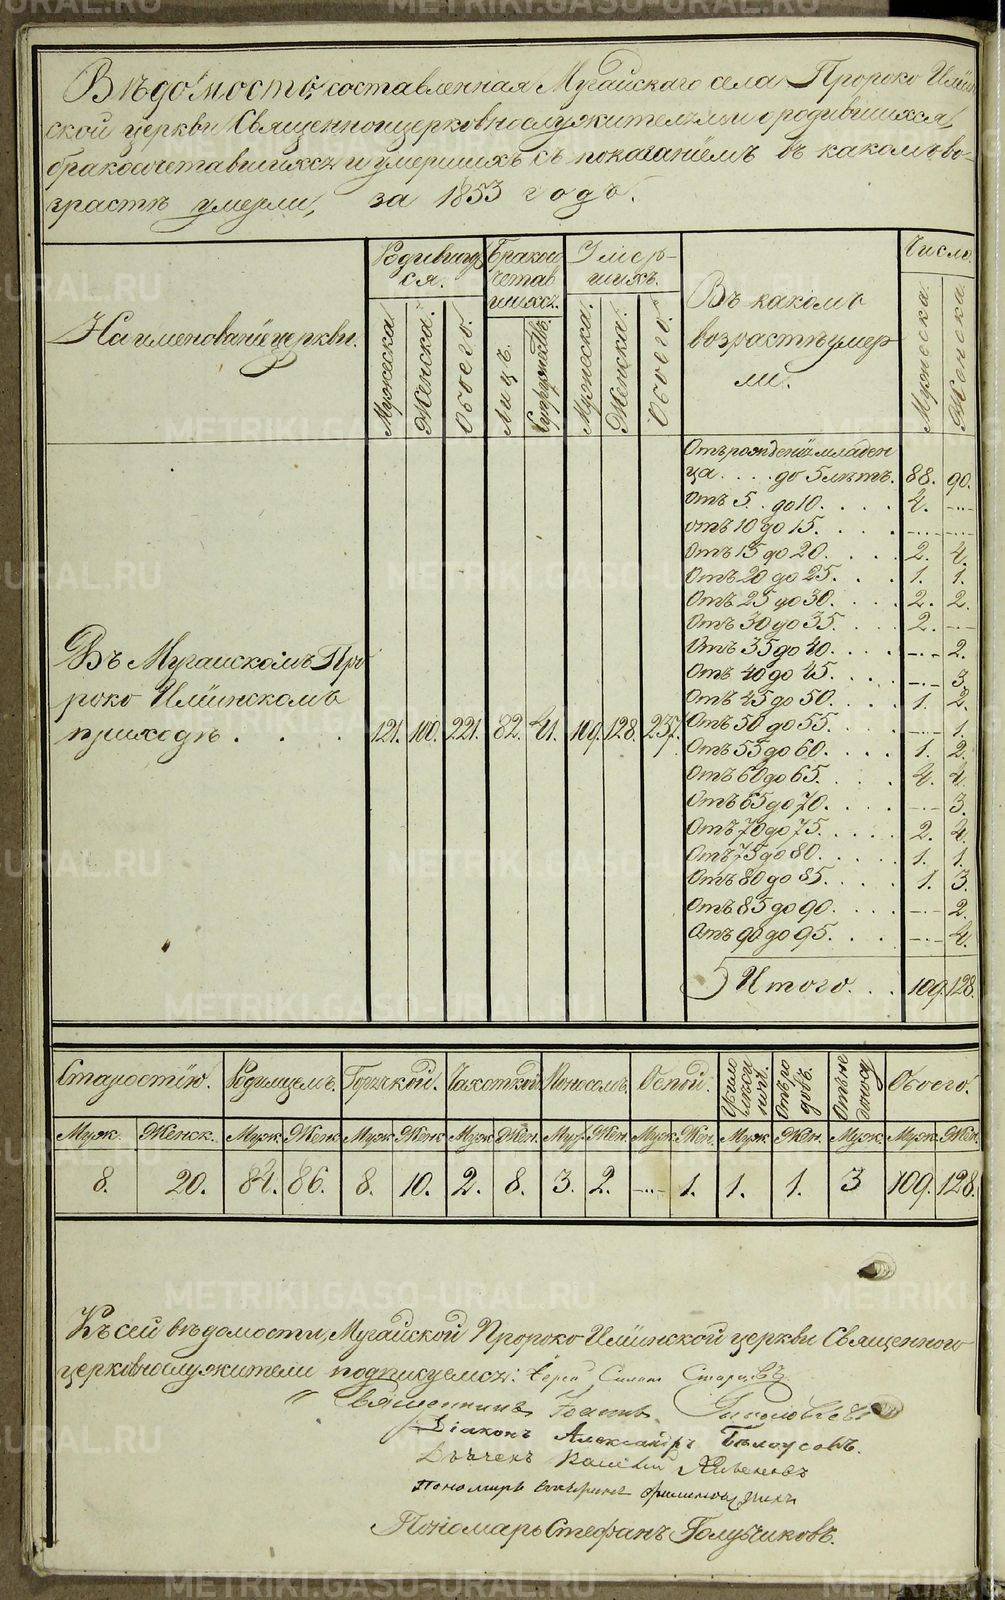 Вѣдомость, составленная Мугайскаго села Пророко Ильин
ской церкви Священноицерковнослужителями ородившихся,
бракосочетавшихся иумершихъ съ показаніемъ въ какомъ во-
зрастѣ умерли, за 1853 годъ.
Наименованіе церкви.
Родивших
ся.
Бракосо
четав
шихся.
Умер-
шихъ.
Въ какомъ
возрастѣ умер
ли.
Число.
Мужеска.
Женска.
Обоего.
Лицъ.
Супружествъ.
Мужеска.
Женска.
Обоего.
Мужеска.
Женска.
Въ Мугайскомъ Про
роко Ильинскомъ
приходѣ . . . 121. 100. 221. 82. 41. 109. 128. 237.
Отъ рожденія младен
ца . . . . до 5 лѣтъ. 88. 90.
Отъ 5. . до 10. . . . . 4. -..-
отъ 10 до 15. . . . . -..- -..-
Отъ 15 до 20. . . . . 2. 4.
Отъ 20 до 25. . . . 1. 1.
Отъ 25 до 30. . . . . 2. 2.
Отъ 30 до 35. . . . . 2. -..-
Отъ 35 до 40. . . . . -..- 2.
Отъ 40 до 45. . . . . -..- 3.
Отъ 45 до 50. . . . . 1. 2.
Отъ 50 до 55. . . . . -..- 1.
Отъ 55 до 60. . . . . 1. 2.
Отъ 60 до 65. . . . . 4. 4.
Отъ 65 до 70. . . . . -..- 3.
Отъ 70 до 75. . . . . 2. 4.
Отъ 75 до 80. . . . . 1. 1.
Отъ 80 до 85. . . . . 1. 3.
Отъ 85 до 90. . . . . -..- 2.
Отъ 90 до 95. . . . -..- 4.
Итого. . . 109. 128.
Старостію. Родимцемъ. Горячкой. Чахоткой. Поносомъ. Оспой. Отъ ро
довъ. Обоего.
Муж. Женск. Муж. Жен. Муж. Жен. Муж. Жен. Муж. Жен. Муж. Жен. Муж. Жен. Муж. Муж. Жен.
8. 20. 84. 86. 8. 10. 2. 8. 3. 2. -..- 1. 1. 1. 3 109. 128.
Къ сей вѣдомости, Мугайской Пророко Ильинской церкви Священно
церковнослужители подписуемся: Іерей Симеон Старцевъ.
Священникъ Іоаннъ
Діаконъ Александръ Бѣлоусовъ.
Дьячекъ
Пономарь
Пономарь Стефанъ Голубчиковъ.
METRIKI.GASO-URAL.RU